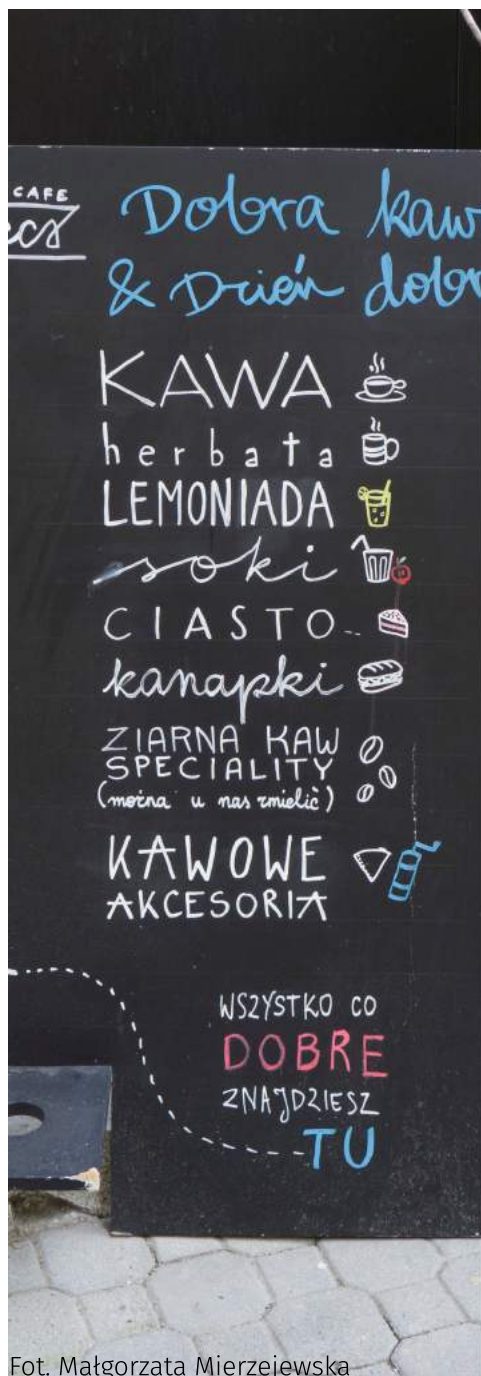 CAFE
Dobra kaw
& Dzień dobr
KAWA
herbata
LEMONIADA
soki
CIASTO
kanapki
ZIARNA KAW
SPECIALITY
(można u nas zmielić)
KAWOWE
AKCESORIA
WSZYSTKO CO
DOBRE
ZNAJDZIESZ
TU
Fot. Małgorzata Mierzejewska